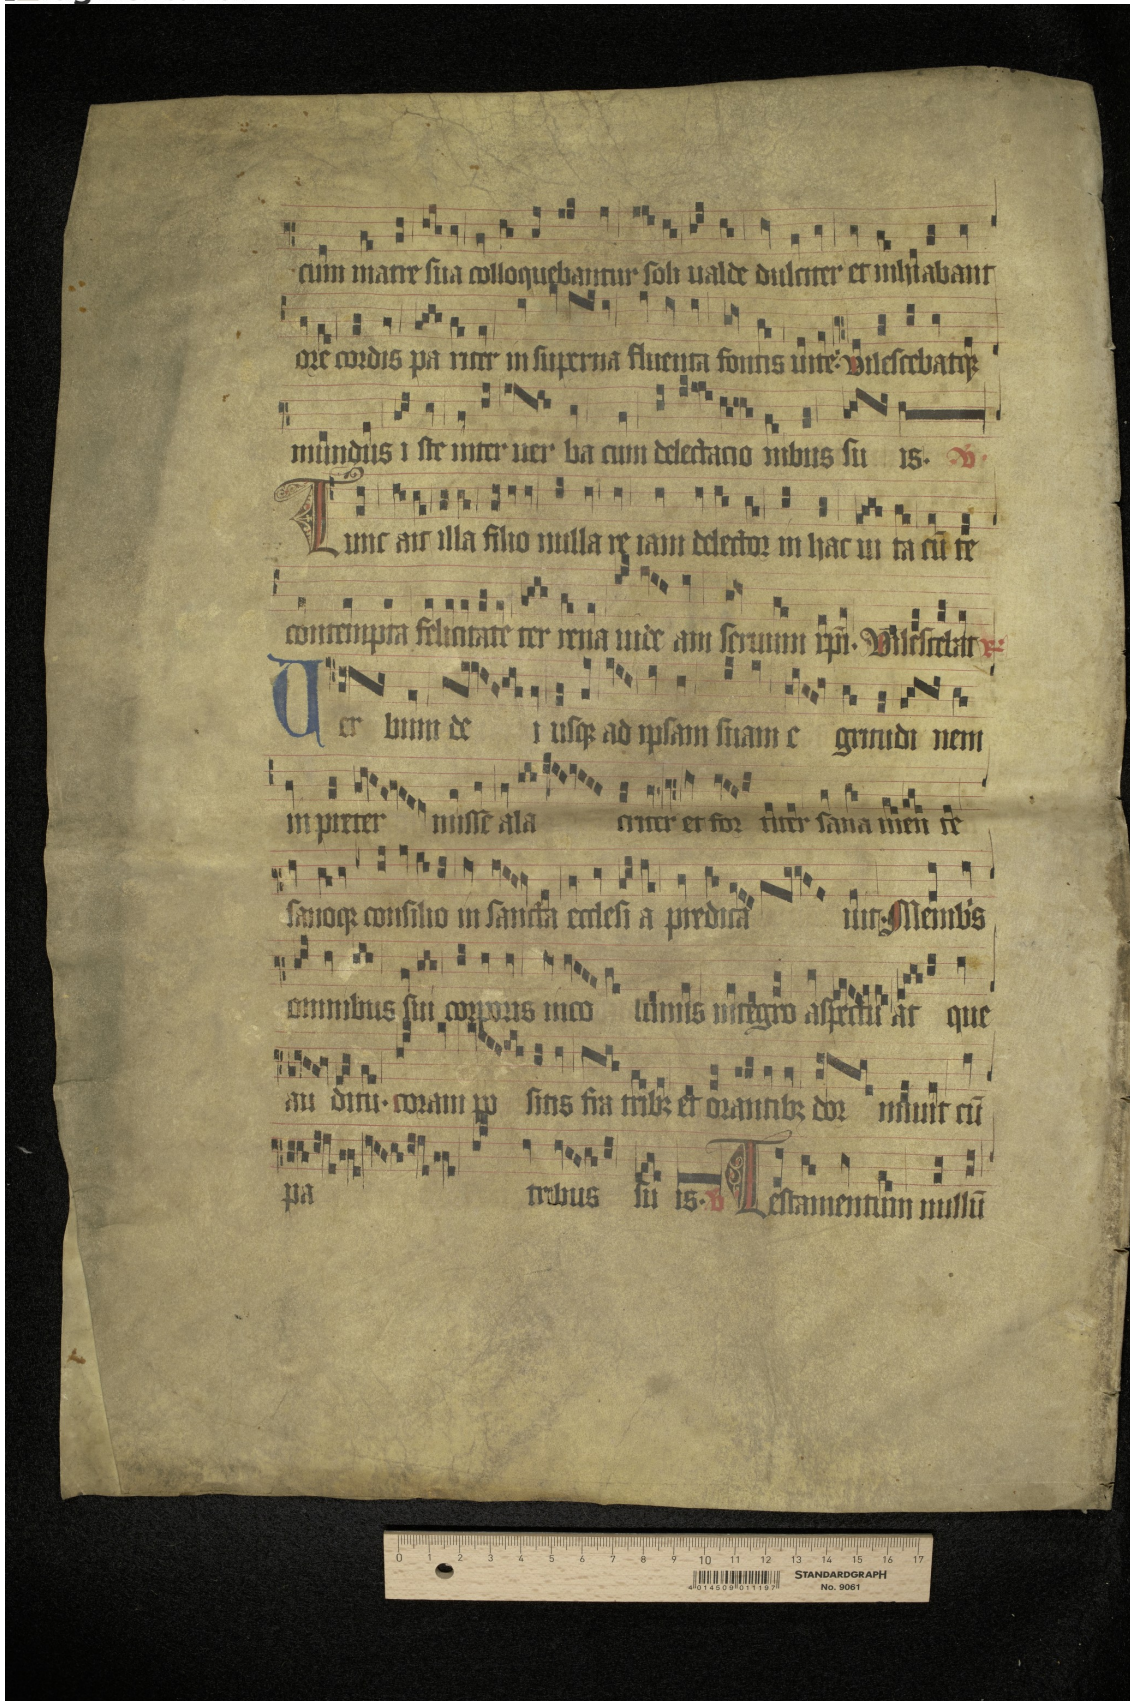 cum matre sua colloquebantur soli ualde dulciter et inhiabant
ore cordis pa riter in superna fluenta fontis uite: Vilescebatqꝫ
mundus i ste inter uer ba cum delectacio nibus su is. V
Tunc ait illa filio nulla re iam delector in hac ui ta cū te
contempta felicitate ter rena uide am seruum xp̄i. Vilescebat R
Uer bum de i usqꝫ ad ipsam suam e gritudi nem
in preter misse ala criter et for titer sana men te
sanoqꝫ consilio in sancta ecclesi a predica uit. Membris
omnibus sui corporis inco lumis integro aspectu at que
au ditu. coram po sitis fra tribꝫ et orantibꝫ dor miuit cū
pa tribus su is. V Testamentum nullū
0 1 2 3 4 5 6 7 8 9 10 11 12 13 14 15 16 17
STANDARDGRAPH
4 014509 011197
No. 9061